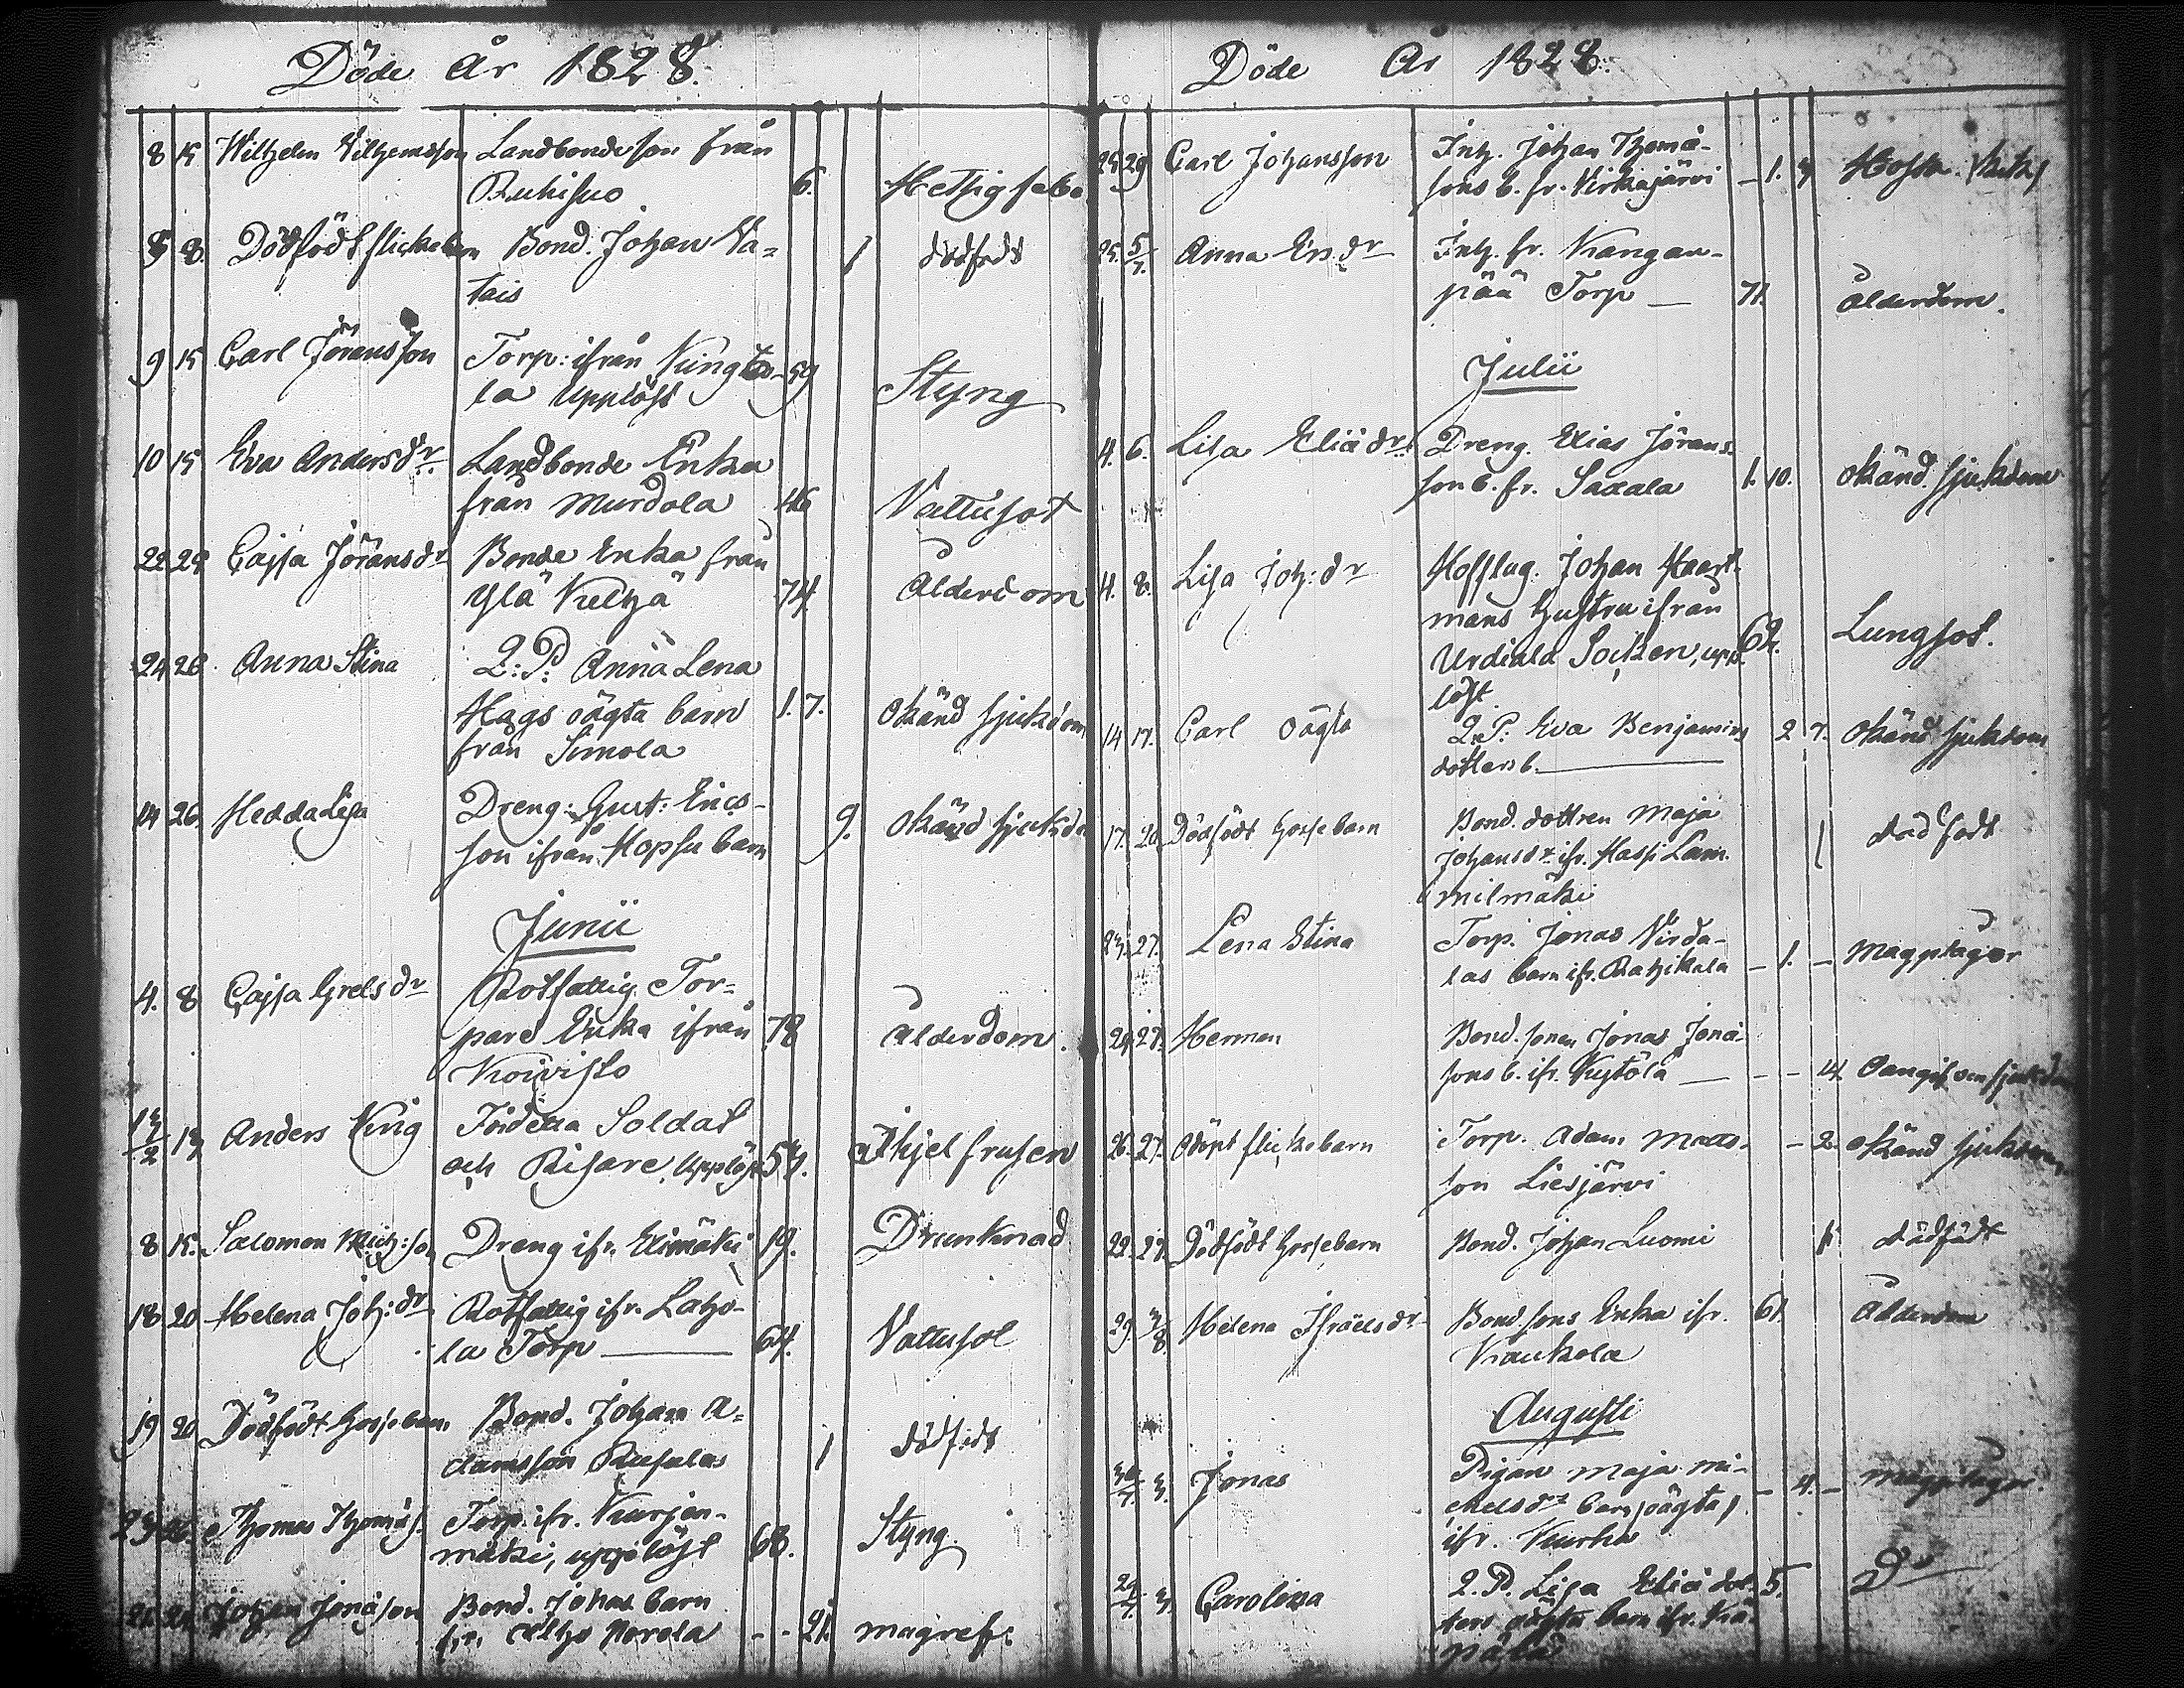 Döde År 1828.
8 15 Wilhelm Wilhemsson Landbondeson från
Ruhisuo 6. Hettig feber
5 8. Dödfödt flickebarn Bond. Johan Ra=
tais 1 dödfödt
9 15 Carl Jöransson Torp: ifrån Kungto-
la Upplöst 59 Styng
10 15 Eva Andersdr Landbonde Enka
från Murdola 46 Vattusot
22 29 Cajsa Jöransdr Bonde Enka från
Ylä Kelhä 74. Ålderdom
24 26. Anna Stina Q: P: Anna Lena
Hags oägta barn 1. 7. Okänd sjukdom
från Simola
14 26. Hedda Lisa Dreng: Gust: Erics-
son ifrån Hopsu barn 9. Okänd sjukdo
Junii
4. 8 Cajsa Grelsdr Rotfattig Tor=
pare Enka ifrån 78 Ålderdom.
Koivisto
13/2 13 Anders King Fördetta Soldat
och Risare, Upplöst 53. Ihjel frusen
8 15. Salomon Mich:son Dreng ifr. Elimäki 19. Drunknad
18. 20 Helena Joh:dr Rotfattig ifr. Laho-
la Torp 64. Vattusot
19 20 Dödfödt Gossebarn Bond. Johan A=
damsson Rusulas 1 dödfödt
23 26. Thomas Thomas. Torp. ifr. Kurjen-
mäki, upplöst 68. Styng.
21. 29. Johan Jonason Bond. Johas barn
fr. Alho Norola - - 21. magref:
Döde År 1828.
25 29 Carl Johansson Inh. Johan Thoma-
sons b. fr. Virkajärvi - 1. 3 Hosta. kik
25. 5/7. Anna Er.dr Inh. fr. Kangan-
pää Torp 71. Ålderdom.
Julii
4. 6. Lisa Eliädr. Dreng. Elias Jörans-
son b. fr. Saxala 1. 10. Okänd sjukdom
4. 8. Lisa Joh:dr Hofslag. Johan Haart-
mans hustru ifrån
Urdiala Socken, upp- 62. Lungsot.
löst.
14 17. Carl oägta Q. P: Eva Benjamins
dotters b. 2 7. Okänd sjukdom
17. 20. Dödfödt Gossebarn Bond. dottren Maja
Johansdr ifr. Haspi Lam- 1 dödfödt
milmäki
23. 27. Lena Stina Torp. Jonas Virda-
las barn ifr. Rahikkala - 1. - Magplågor
24. 27. Herman Bond. sonen Jonas Jona-
sons b. ifr. Kytölä - - - 14. Oangifven sjukdom
26. 27. Odöpt flickebarn Torp. Adam Matts- - 2. Okänd sjukdom
son Liesjärvi
22. 27. Dödfödt Gossebarn Bond. Johan Luomi 1 dödfödt
29. 3/8. Helena Israelsdr Bondsons Enka ifr. 61. Ålderdom
Kaukola
Augusti
30/7. 3. Jonas Pigan Maja Mi-
chelsdr barn, oägta, - 4. - Magplågor.
ifr. Kuurha
29/7. 3. Carolina Q. P. Lisa Eliædot- 5. Do
ters oägta barn ifr. Kä-
pälä